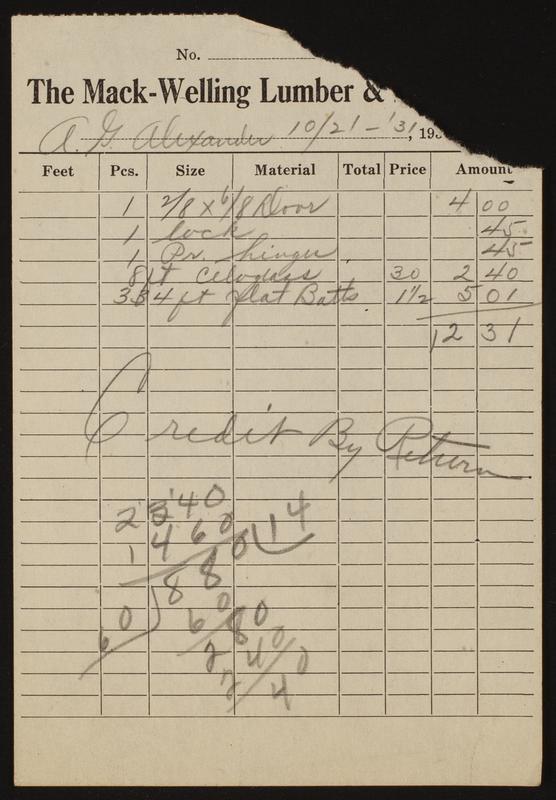 No.
The Mack-Welling Lumber &
A. G. Alexander 10/21 - '31, 193
Feet Pcs. Size Material Total Price Amount
1 2/8 x 6/8 Door 4 00
1 lock 45
1 Pr. hinges 45
8 ft Celoglass 30 2 40
334 ft flat Batts. 1 1/2 5 01
12 31
Credit By Return
2 3 40
1 4 60
60 ) 8 80 ( 14
6 0
2 80
2 40
2 40